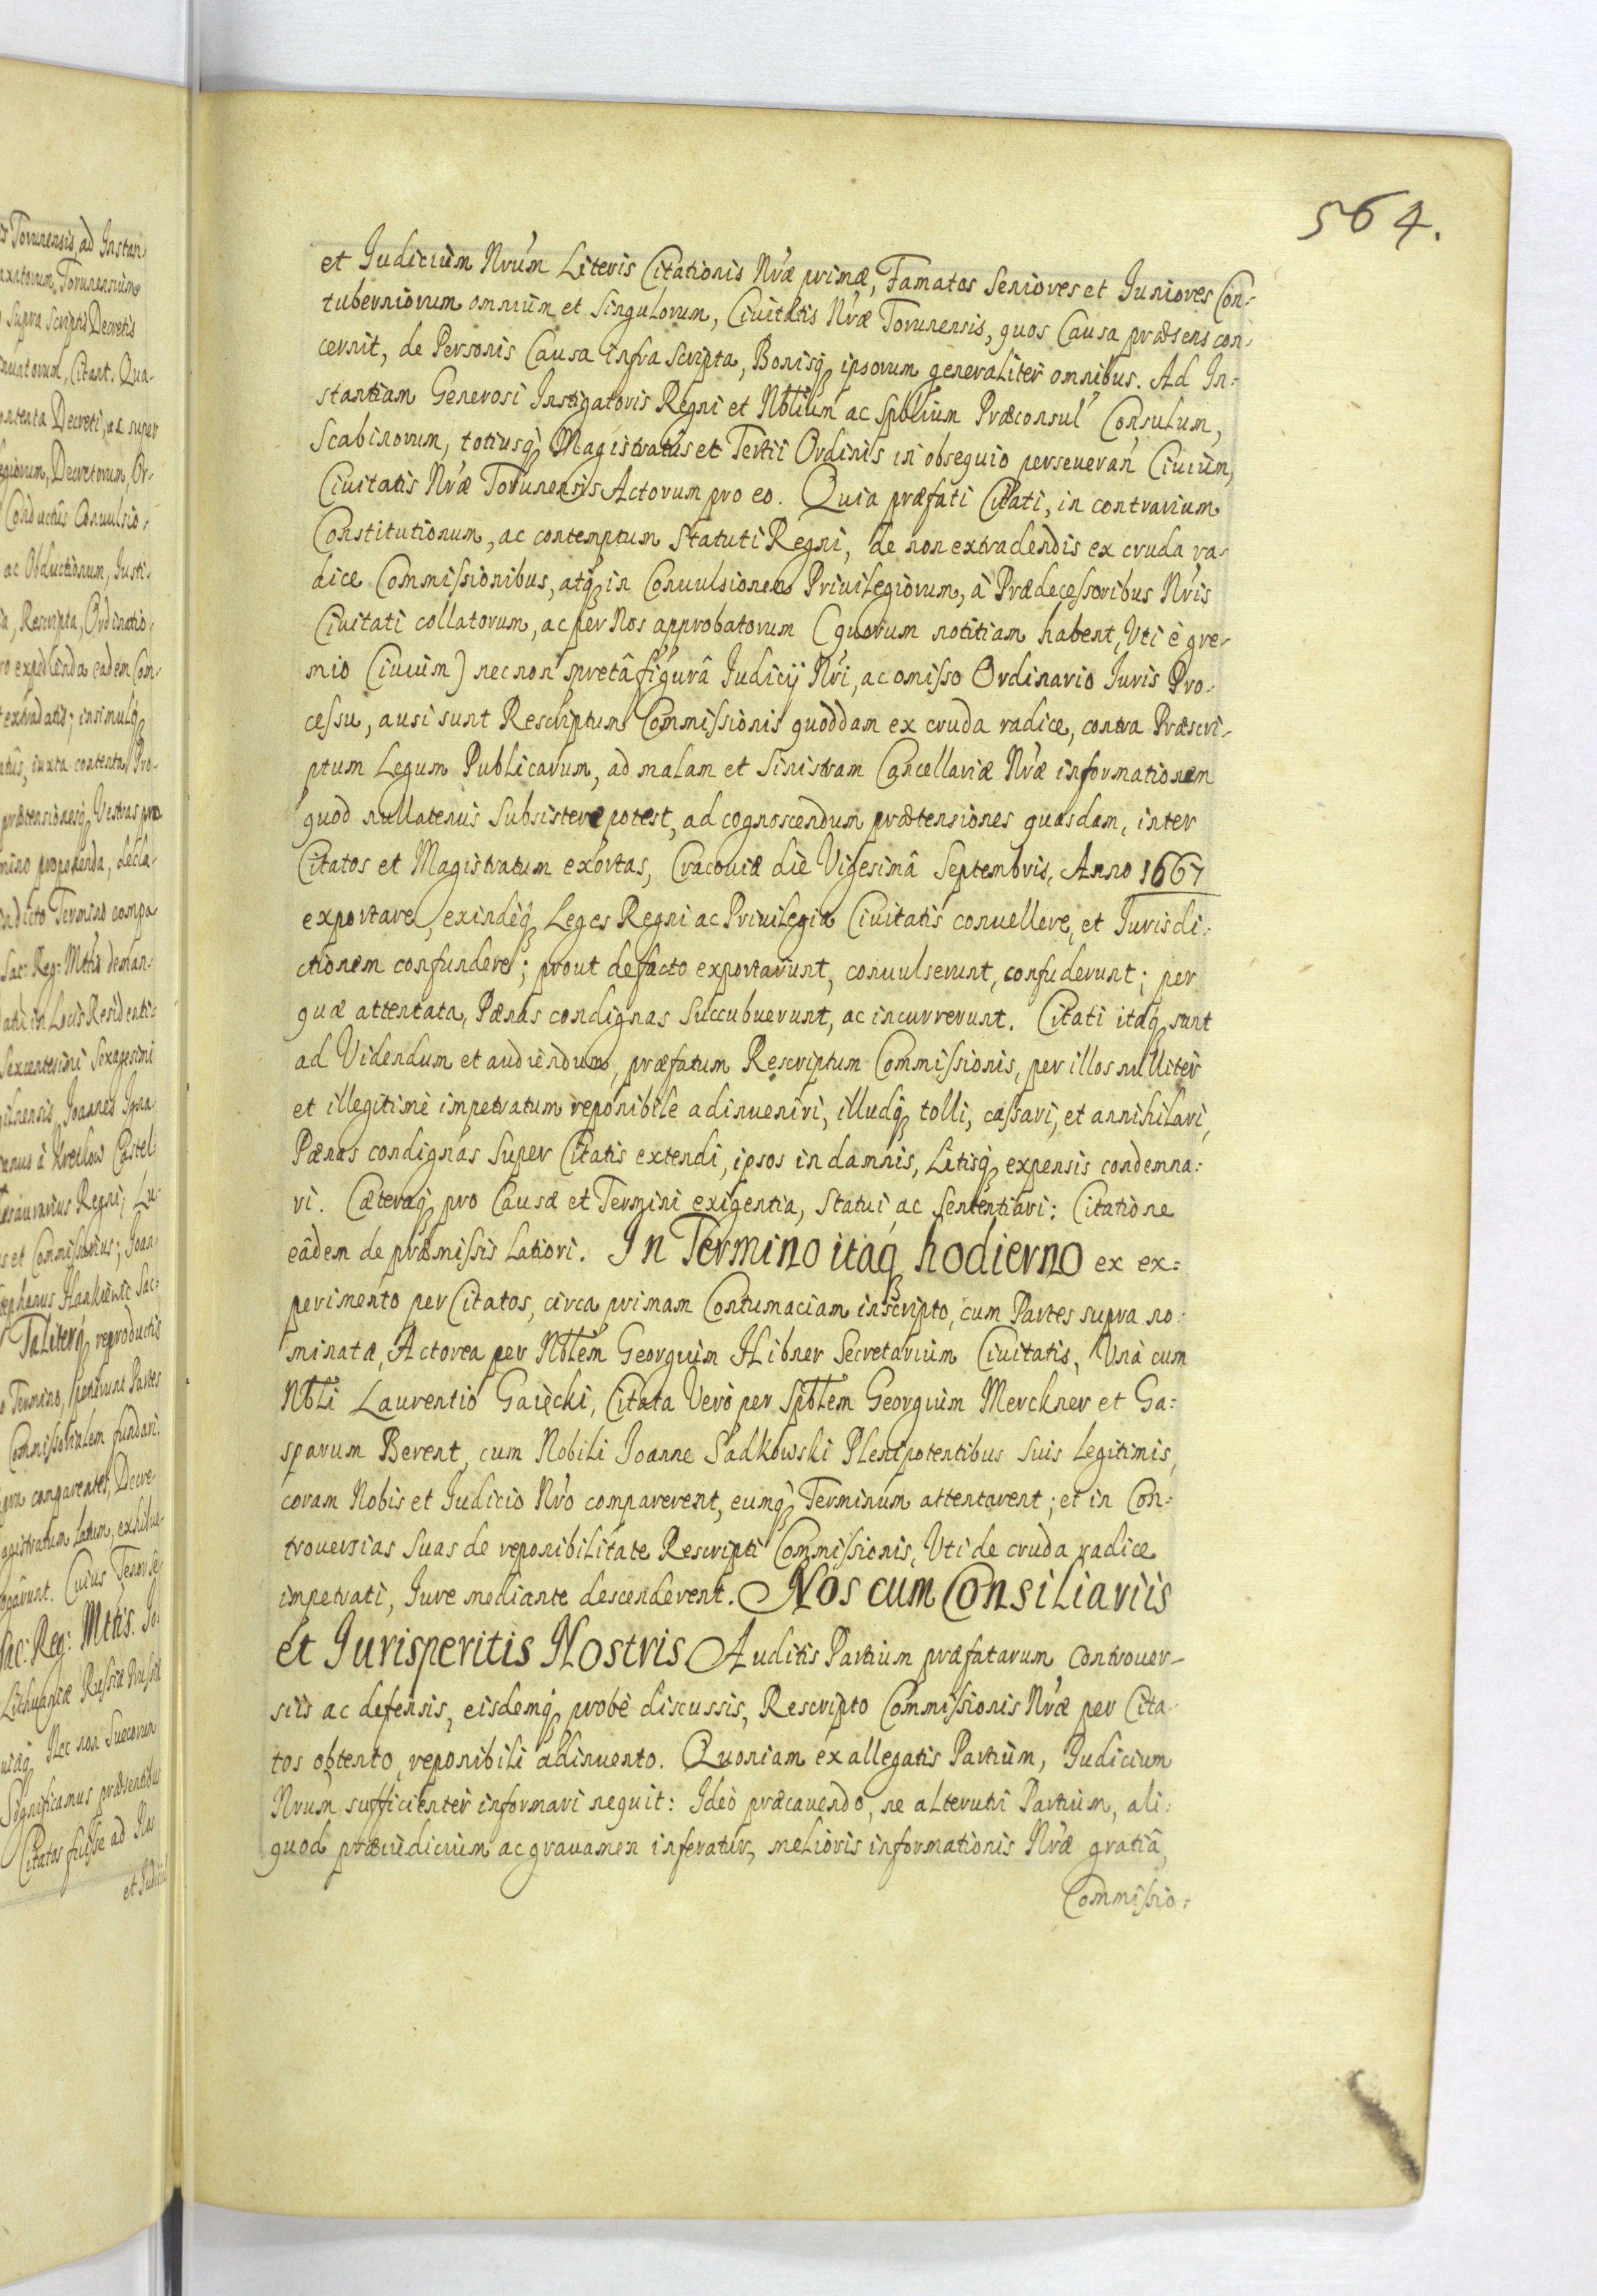 564.
et Judicium Nrum Literis Citationis Nræ primæ, Famatos Seniores et Juniores Con=
tuberniorum omnium et Singulorum, Ciuitatis Nræ Torunensis, quos Causa præsens con=
cernit, de Personis Causa infra scripta, Bonisq ipsorum generaliter omnibus. Ad In=
stantiam Generosi Instigatoris Regni et Nbtium ac Spblium Præconsul Consulum,
Scabinorum, totiusq Magistratus et Tertii Ordinis in obsequio perseueran Ciuium,
Ciuitatis Nræ Torunensis Actorum pro eo. Quia præfati Citati, in contrarium
Constitutionum, ac contemptum Statuti Regni, de non extradendis ex cruda ra=
dice Commissionibus, atq in Conuulsionem Priuilegiorum, à Prædecessoribus Nris
Ciuitati collatorum, ac per Nos approbatorum (quorum notitiam habent, Vti è gre=
mio Ciuium) nec non spretâ figurâ Judicij Nri, ac omisso Ordinario Juris Pro=
cessu, ausi sunt Rescriptum Commissionis quoddam ex cruda radice, contra Præscri=
ptum Legum Publicarum, ad malam et Sinistram Cancellariæ Nræ informationem
quod nullatenus Subsistere potest, ad cognoscendum prætensiones quasdam, inter
Citatos et Magistratum exortas, Cracouiæ die Vigesimâ Septembris, Anno 1667
exportare, exindeq Leges Regni ac Priuilegia Ciuitatis conuellere, et Jurisdi=
ctionem confundere; prout de facto exportarunt, conuulserunt, confuderunt; per
quæ attentata, Pænas condignas Succubuerunt, ac incurrerunt. Citati itaq sunt
ad Videndum et audiendum, præfatum Rescriptum Commissionis, per illos nulliter
et illegitimè impetratum reponibile adinueniri, illudq tolli, cassari, et annihilari,
Pænas condignas Super Citatis extendi, ipsos in damnis, Litisq expensis condemna=
ri. Cæteraq pro Causæ et Termini exigentia, Statui ac Sententiari: Citatione
eâdem de præmissis Latiori. In Termino itaq hodierno ex ex=
perimento per Citatos, circa primam Contumaciam inscripto, cum Partes supra no=
minatæ, Actorea per Nbtem Georgium Hibner Secretarium Ciuitatis, Vnà cum
Nbli Laurentio Gaięcki, Citata Verò per Spblem Georgium Merckner et Ga=
sparum Berent, cum Nobili Joanne Sadkowski Plenipotentibus Suis Legitimis,
coram Nobis et Judicio Nro comparerent, eumq Terminum attentarent; et in Con=
trouersias Suas de reponibilitate Rescripti Commissionis, Vti de cruda radice
impetrati, Jure mediante descenderent. Nos cum Consiliariis
et Jurisperitis Nostris Auditis Partium præfatarum Controuer=
siis ac defensis, eisdemq probè discussis, Rescripto Commissionis Nræ per Cita=
tos obtento, reponibili adinuento. Quoniam ex allegatis Partium, Judicium
Nrum sufficienter informari nequit: Ideò præcauendo, ne alterutri Partium, ali=
quod præiudicium ac grauamen inferatur, melioris informationis Nræ gratiâ,
Commissio=